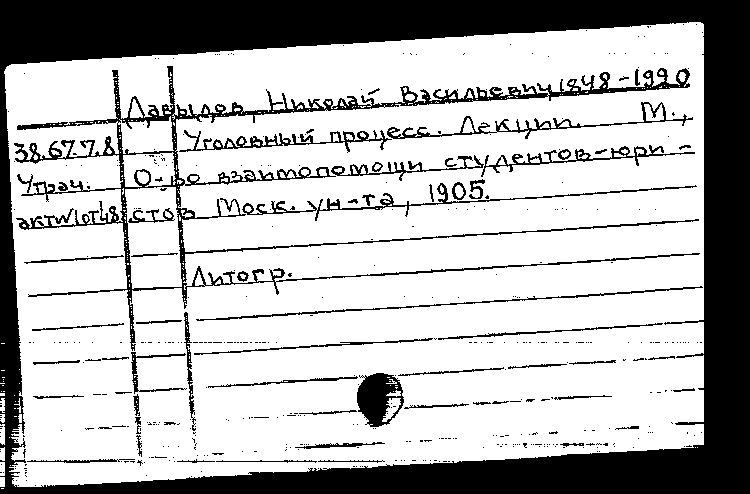 Давыдов, Николай Васильевич 1848-1920
38.67.7.8. Уголовный процесс. Лекции. М.,
Утрач. О-во взаимопомощи студентов-юри-
стов Моск. ун-та, 1905.
Литогр.